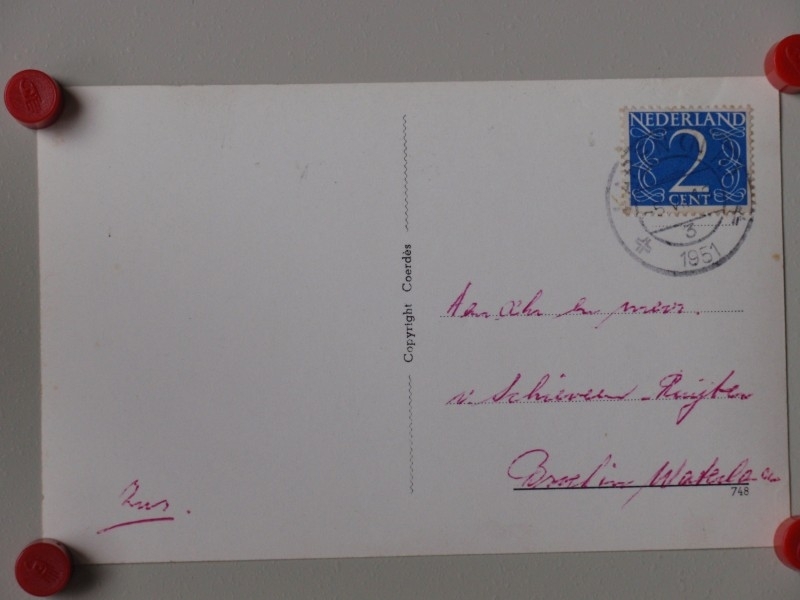 NEDERLAND
2
CENT
3
1951
Copyright Coerdès
Aan dhr en mevr.
v. Schieveen - Ruijten
Waterla
748
Zus.